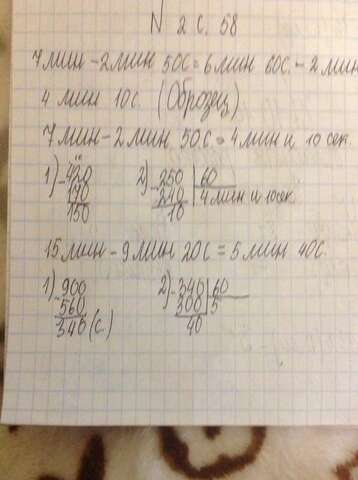 N 2 с. 58
7 мин - 2 мин 50с = 6 мин 60с. - 2 мин
4 мин 10с. (Образец)
7 мин - 2 мин 50с = 4 мин и 10 сек.
1) - 420 2) - 250 | 60
170 240 4 мин и 10сек.
150 10
15 мин - 9 мин 20с = 5 мин 40с.
1) - 900 2) - 340 | 60
560 300 5
340 (с.) 40